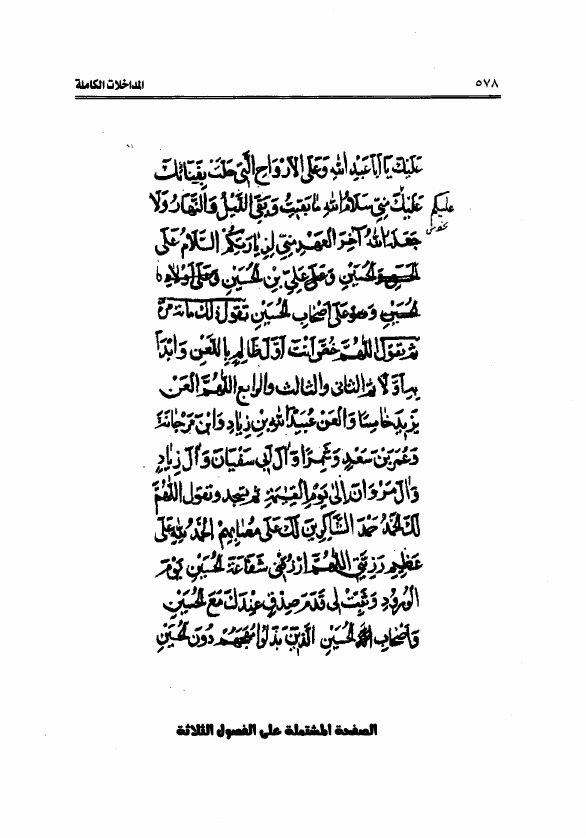 ٥٧٨
المداخلات الكاملة
عَلَيْكَ يَا أَبَا عَبْدِ اللهِ وَعَلَى الْأَرْوَاحِ الَّتِي حَلَّتْ بِفِنَائِكَ
عليكم
عَلَيْكَ مِنِّي سَلَامُ اللهِ مَا بَقِيتُ وَبَقِيَ اللَّيْلُ وَالنَّهَارُ وَلَا
جَعَلَهُ اللهُ آخِرَ الْعَهْدِ مِنِّي لِزِيَارَتِكُمْ السَّلَامُ عَلَى
الْحُسَيْنِ وَعَلَى عَلِيِّ بْنِ الْحُسَيْنِ وَعَلَى أَوْلَادِ
الْحُسَيْنِ وَعَلَى أَصْحَابِ الْحُسَيْنِ تَقُولُ ذَلِكَ مِائَةَ مَرَّةٍ
ثُمَّ تَقُولُ اللَّهُمَّ خُصَّ أَنْتَ أَوَّلَ ظَالِمٍ بِاللَّعْنِ وَابْدَأْ
بِهِ أَوَّلًا ثُمَّ الثَّانِي وَالثَّالِثَ وَالرَّابِعَ اللَّهُمَّ الْعَنْ
يَزِيدَ خَامِسًا وَالْعَنْ عُبَيْدَ اللهِ بْنَ زِيَادٍ وَابْنَ مَرْجَانَةَ
وَعُمَرَ بْنَ سَعْدٍ وَشِمْرًا وَآلَ أَبِي سُفْيَانَ وَآلَ زِيَادٍ
وَآلَ مَرْوَانَ إِلَى يَوْمِ الْقِيمَةِ ثُمَّ تَسْجُدُ وَتَقُولُ اللَّهُمَّ
لَكَ الْحَمْدُ حَمْدَ الشَّاكِرِينَ لَكَ عَلَى مُصَابِهِمْ الْحَمْدُ لِلّهِ عَلَى
عَظِيمِ رَزِيَّتِي اللَّهُمَّ ارْزُقْنِي شَفَاعَةَ الْحُسَيْنِ يَوْمَ
الْوُرُودِ وَثَبِّتْ لِي قَدَمَ صِدْقٍ عِنْدَكَ مَعَ الْحُسَيْنِ
وَأَصْحَابِ الْحُسَيْنِ الَّذِينَ بَذَلُوا مُهَجَهُمْ دُونَ الْحُسَيْنِ
الصفحة المشتملة على الفصول الثلاثة